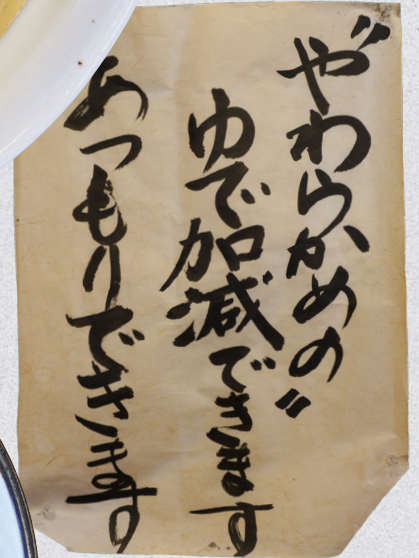 〝やわらかめの〟
ゆで加減できます
あつもりできます